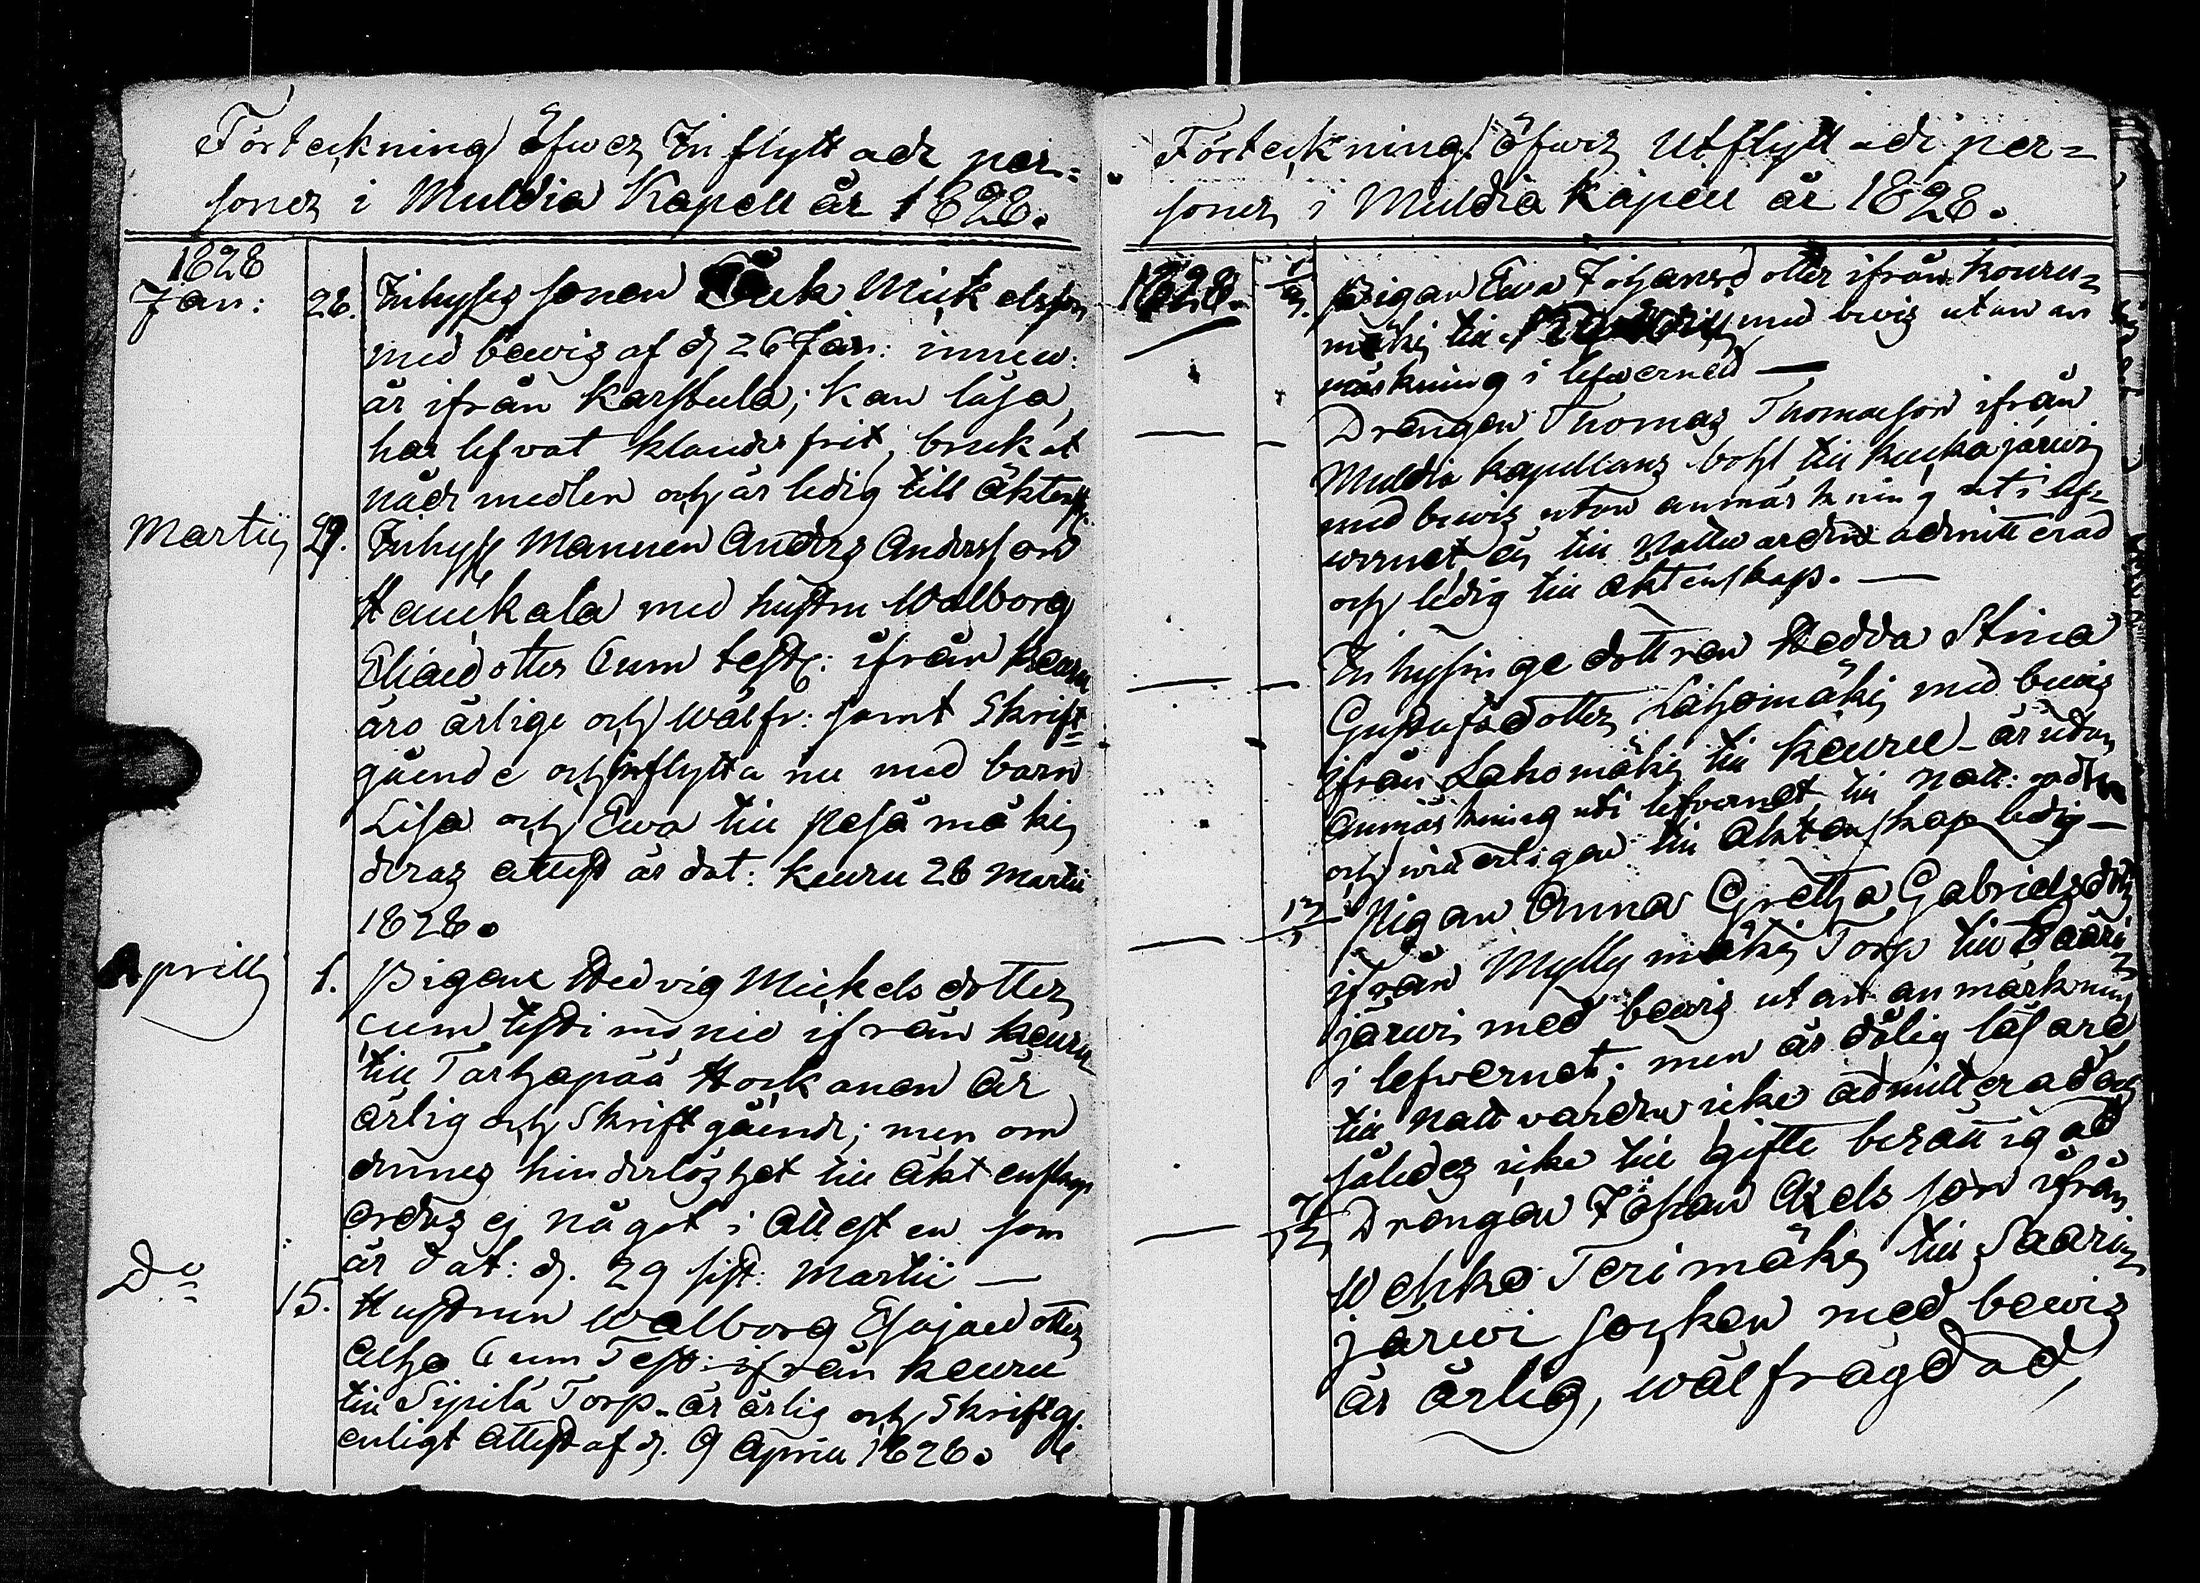 Förteckning öfwer Inflyttade per=
soner i Muldia Kapell år 1828.
1828
Jan: 28. Inhyses sonen Mickelsson
med bewis af d 26 Jan: innew:
är ifrån Karstula; kan läsa,
har lefvat klanderfrit, brukat
nådemedlen och är ledig till äktensk.
Martii 29. Inhyses Mannen Anders Andersson
Haukkala med hustru Walborg
Eliaed otter Cum test: ifrån Keuru
äro ärlige och wälfr: samt Skrift=
gående och inflytta nu med barn
Lisa och Ewa till Pesämäki
deras attest är dat: Keuru 28 Martii
1828.
Aprill 1. Pigan Hedvig Mickelsdotter
cum testimonio ifrån Keuru
till Tarhapää Hockanen är
ärlig och Skriftgående; men om
dennes hinderlöshet till äktenskap
ordas ej något i Attesten som
är dat: d. 29 sist: Martii —
Do 15. Hustrun Walborg Esajaedotter
Alho Cum Test: ifrån Keuru
till Sipilä Torp. är ärlig och Skriftg.
enligt Attest af d. 9 April 1828.
Förteckning öfwer Utflyttade per=
soner i Muldia Kapell år 1828.
1828. Pigan Ewa Johansdotter ifrån Kouru=
mäki till med bewis utan an
märkning i lefwerned —
Drängen Thomas Thomasson ifrån
Muldia Kapellans bohl till Keuka järwi
med bewis utan anmärkning uti lef=
wernet, är till Nattwarden admitterad
och ledig till äktenskap. —
Inhysinge dottren Hedda Stina
Gustafsdotter Lahomäki med bewis
ifrån Lahomäki till Keuru — är utan
Anmärkning uti lefvernet, till Natt:
och till Aktenskap ledig —
Pigan Anna Gretha Gabrielsdott
ifrån Myllymäki Torp till Saari
järwi med bewis utan anmärkning
i lefwernet; men är dålig läsare
till Nattvarden icke admitterad och
således icke till gifte berättigad
Drängen Johan Axelsson ifrån
Wehko Terimäki till Saari
järwi Socken med bewis
är ärlig, wälfrägdad,